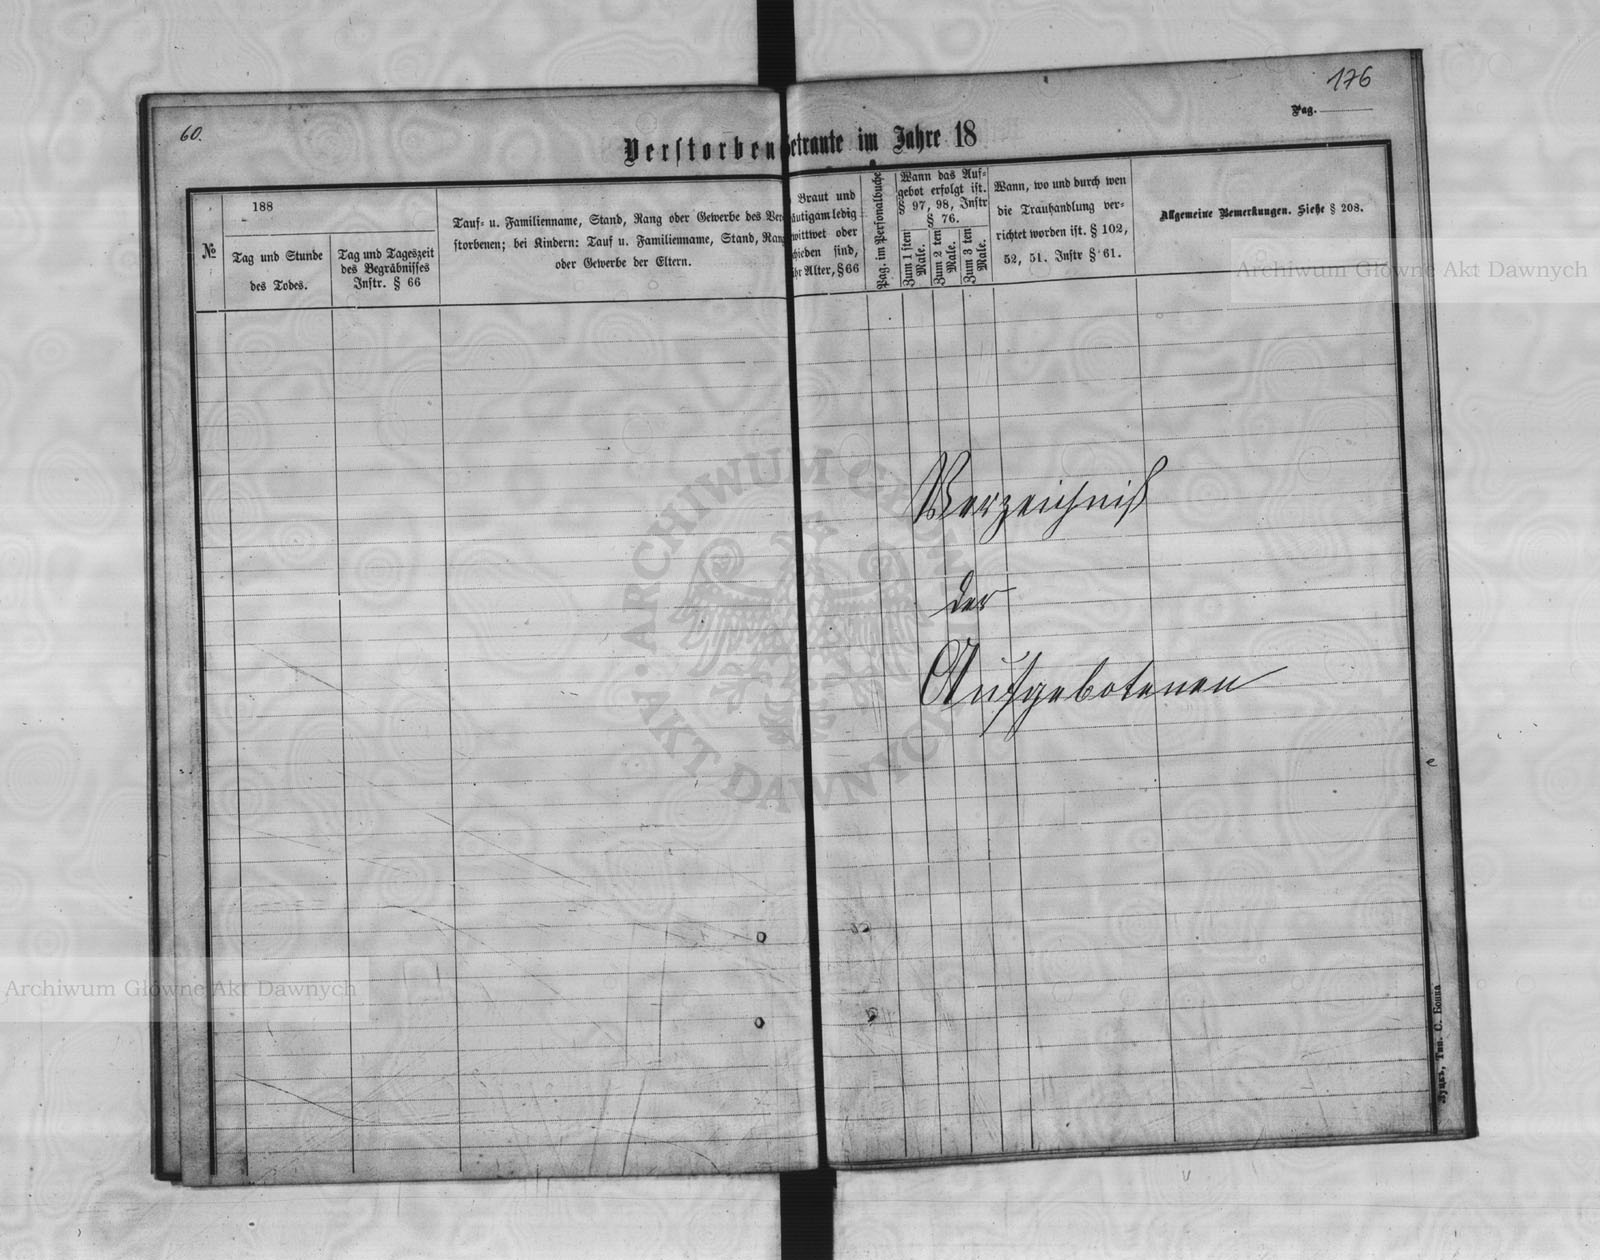 60.
Verstorben
№
188
Tag und Stunde
des Todes.
Tag und Tageszeit
des Begräbnisses
Instr. § 66
Tauf- u. Familienname, Stand, Rang oder Gewerbe des Ver-
storbenen; bei Kindern: Tauf u. Familienname, Stand, Rang
oder Gewerbe der Eltern.
176
Pag.
Getraute im Jahre 18
Braut und
äutigam ledig
wittwet oder
chieden sind,
hr Alter, § 66
Pag. im Personalbuche
Wann das Auf-
gebot erfolgt ist.
§ 97, 98, Instr
§ 76.
Zum 1 sten
Male.
Zum 2 ten
Male.
Zum 3 ten
Male.
Wann, wo und durch wen
die Trauhandlung ver-
richtet worden ist. § 102,
52, 51. Instr § 61.
Allgemeine Bemerkungen. Siehe § 208.
Verzeichniß
der
Aufgebotenen
Луцкъ, Тип. С. Бонка
ARCHIWUM GŁÓWNE AKT DAWNYCH
Archiwum Główne Akt Dawnych
Archiwum Główne Akt Dawnych